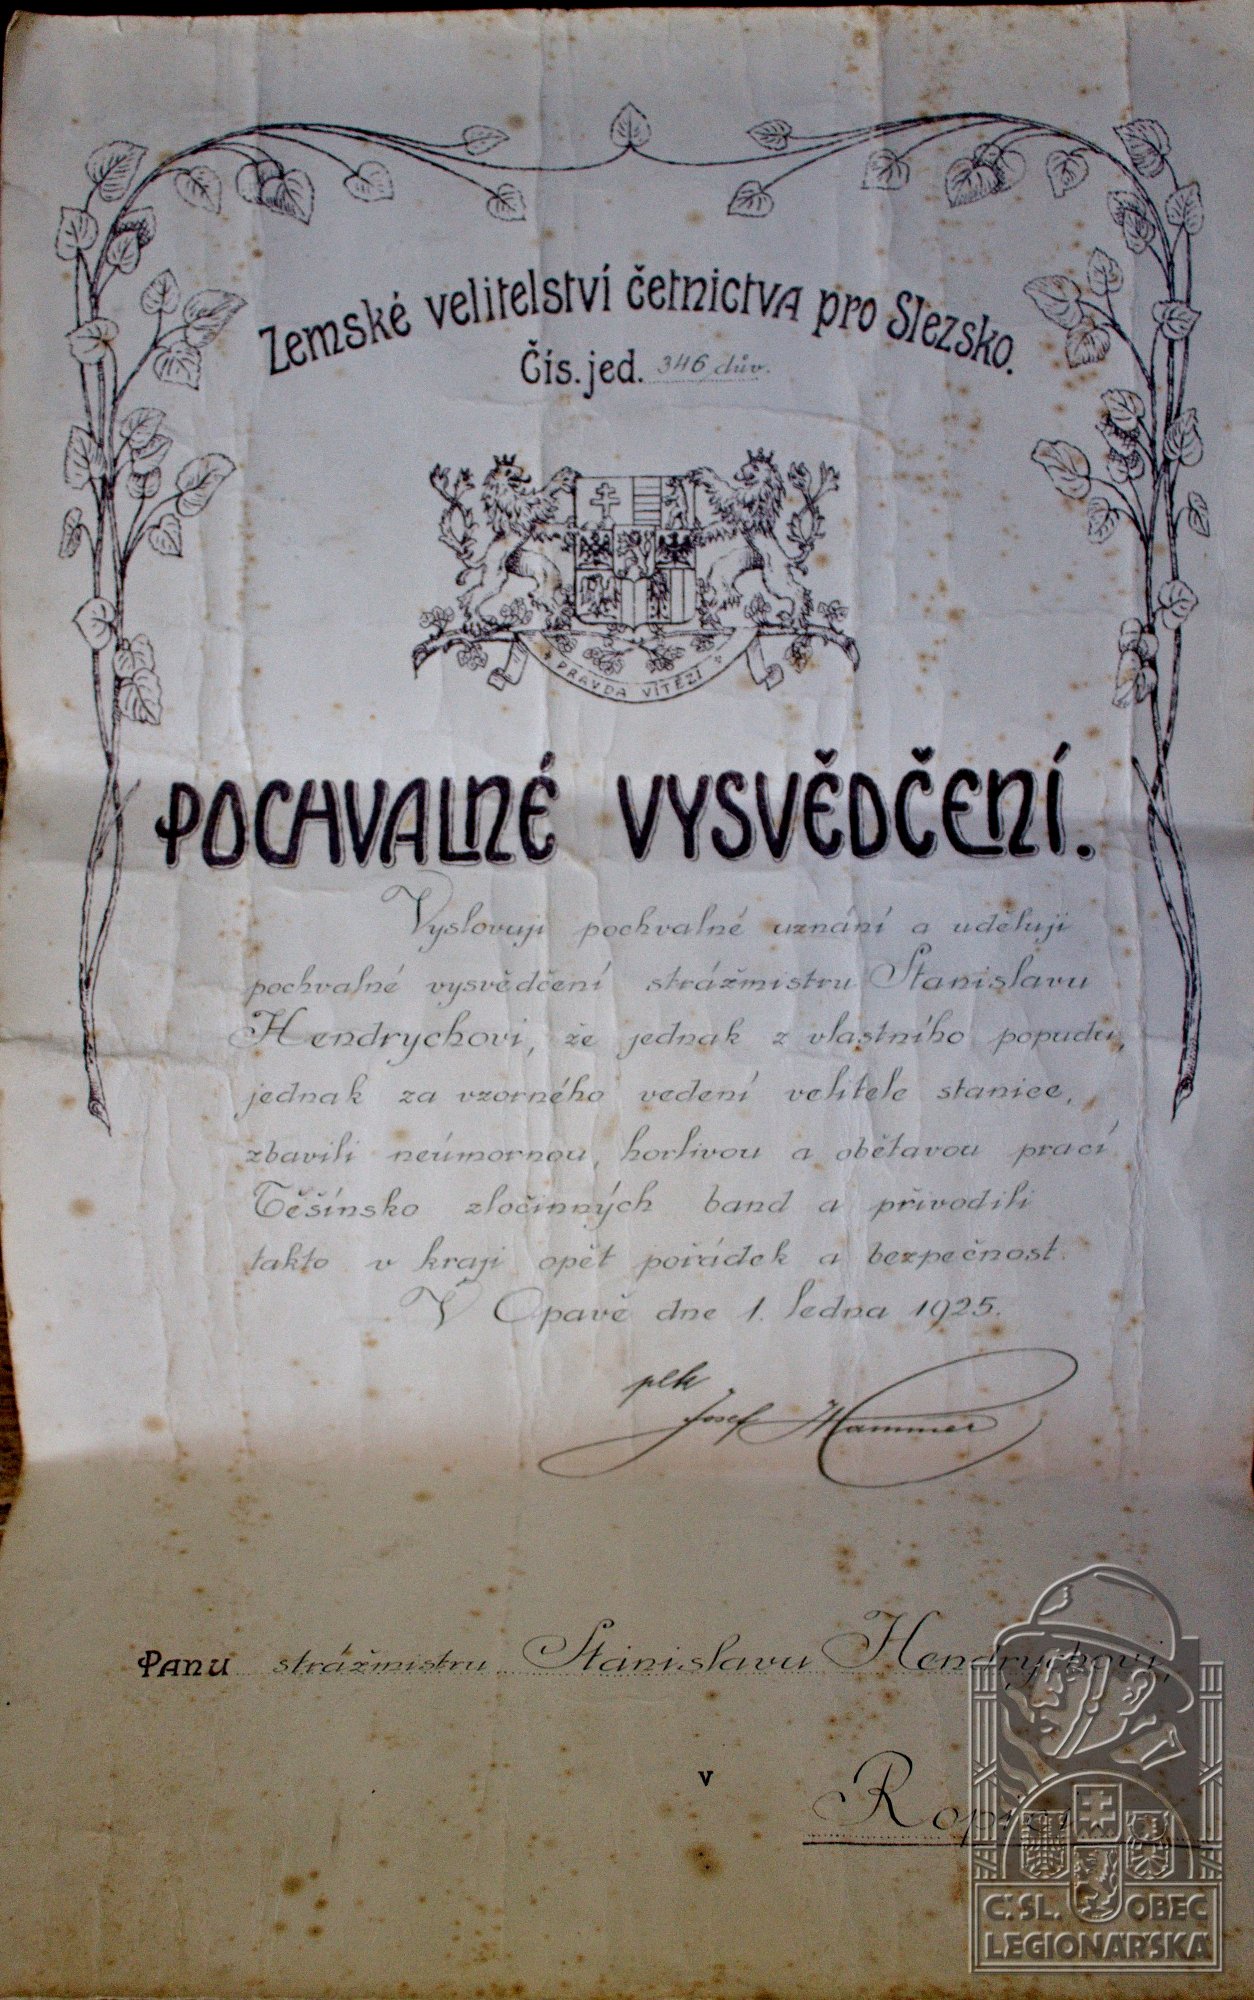 Zemské velitelství četnictva pro Slezsko.
Čís. jed. 346 dův.
PRAVDA VÍTĚZÍ
POCHVALNÉ VYSVĚDČENÍ.
Vyslovuji pochvalné uznání a uděluji
pochvalné vysvědčení strážmistru Stanislavu
Hendrychovi, že jednak z vlastního popudu,
jednak za vzorného vedení velitele stanice,
zbavili neúmornou, horlivou a obětavou prací
Těšínsko zločinných band a přivodili
takto v kraji opět pořádek a bezpečnost.
V Opavě dne 1. ledna 1925.
plk
Josef Hammer
Panu strážmistru Stanislavu Hendrychovi,
v
Č.SL. OBEC
LEGIONÁŘSKÁ